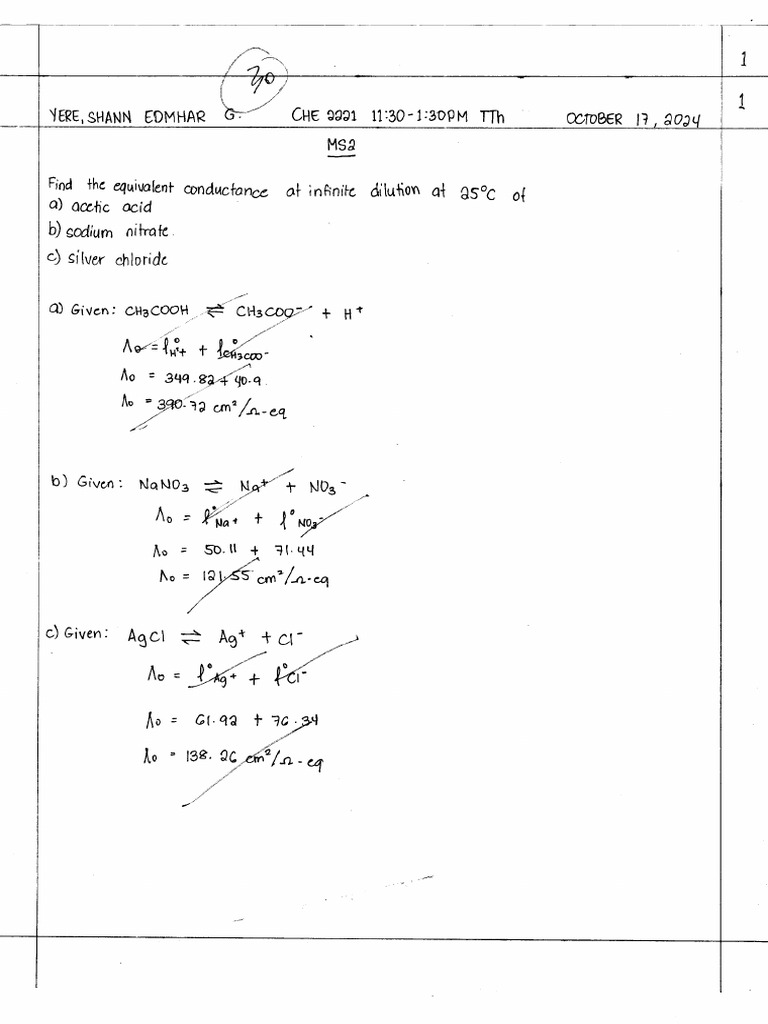 1
30
1
YERE, SHANN EDMHAR G. CHE 2221 11:30-1:30PM TTh OCTOBER 17, 2024
MS2
Find the equivalent conductance at infinite dilution at 25°C of
a) acetic acid
b) sodium nitrate.
c) silver chloride
a) Given: CH₃COOH ⇌ CH₃COO⁻ + H⁺
Λo = l°H⁺ + l°CH₃COO⁻
Λo = 349.82 + 40.9
Λo = 390.72 cm²/Ω-eq
b) Given: NaNO₃ ⇌ Na⁺ + NO₃⁻
Λo = l°Na⁺ + l°NO₃⁻
Λo = 50.11 + 71.44
Λo = 121.55 cm²/Ω-eq
c) Given: AgCl ⇌ Ag⁺ + Cl⁻
Λo = l°Ag⁺ + l°Cl⁻
Λo = 61.92 + 76.34
Λo = 138.26 cm²/Ω-eq